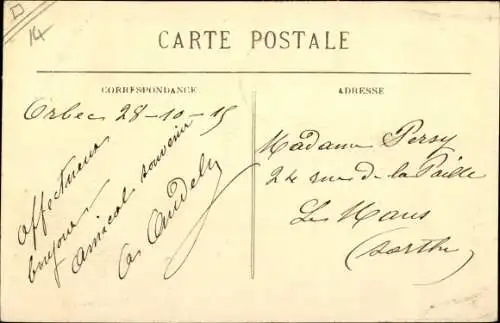 14
CARTE POSTALE
CORRESPONDANCE
ADRESSE
Orbec 28-10-15
affectueux
bonjour
amical souvenir
Madame Persy
24 rue de la Paille
Le Mans
(Sarthe)